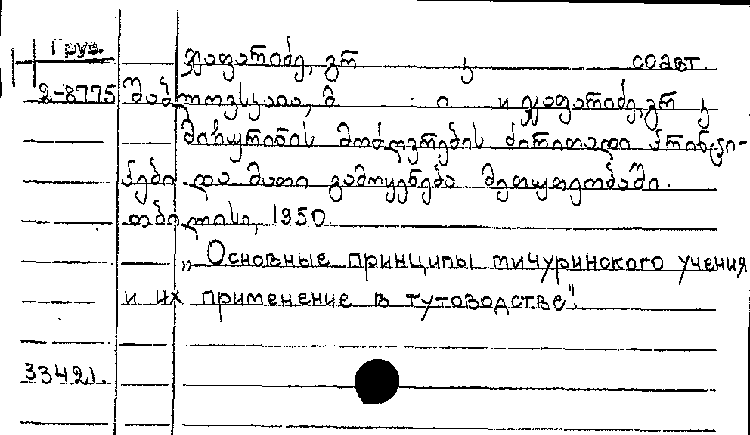 Груз.
ჯაფარიძე, გრ. соавт.
2-8775 და и ჯაფარიძე, გრ.
მიჩურინის მოძღვრების ძირითადი პრინცი-
პები და მათი გამოყენება მეთუთეობაში.
თბილისი, 1950
„Основные принципы мичуринского учения
и их применение в тутоводстве".
33421.